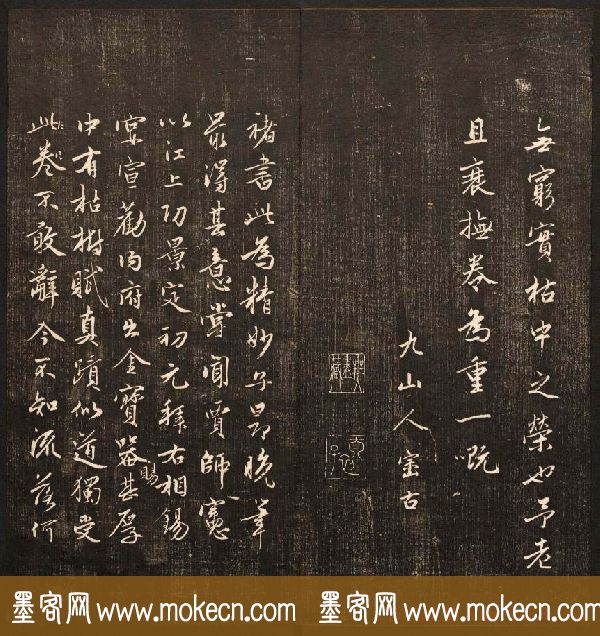 無窮實枯中之榮也予老
且衰撫卷為重一嘅
九山人 古
褚書此為精妙子昂晚筆
最得其意嘗聞賈師憲
以江上功景定初元拜右相錫
宴宣勸內府出金寶器賜甚厚
中有枯樹賦真蹟似道獨受
此卷不敢辭今不知流落何
墨客网 www.mokecn.com 墨客网 www.mokecn.com